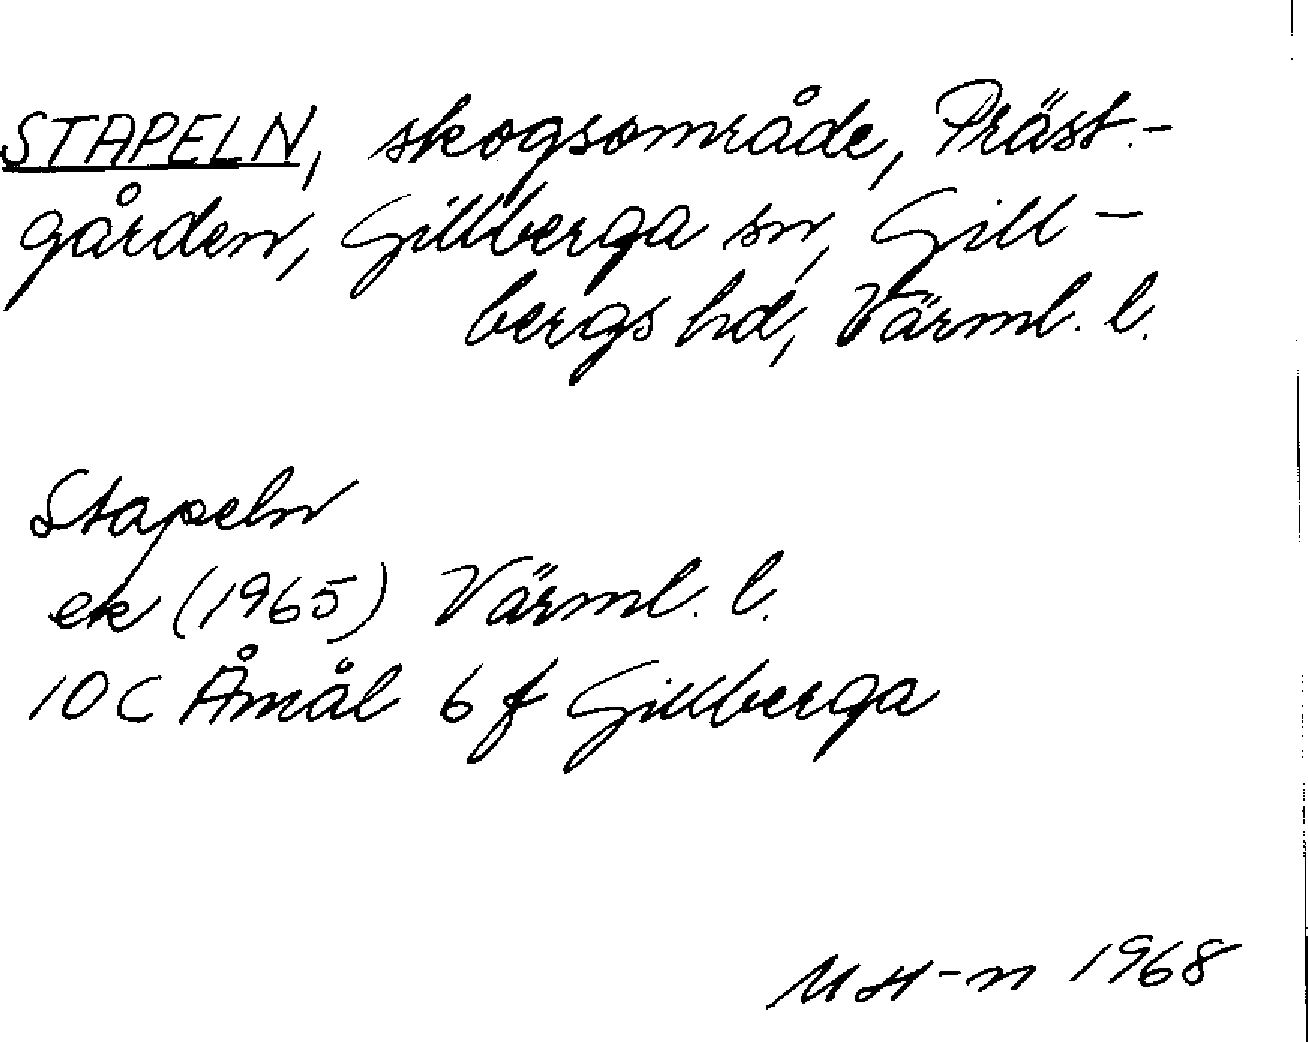 STAPELN, skogsområde, Präst-
gården, Gillberga sn, Gill-
bergs hd, Värml. l.
Stapeln
ek (1965) Värml. l.
10 C Åmål 6 f Gillberga
MH-n 1968